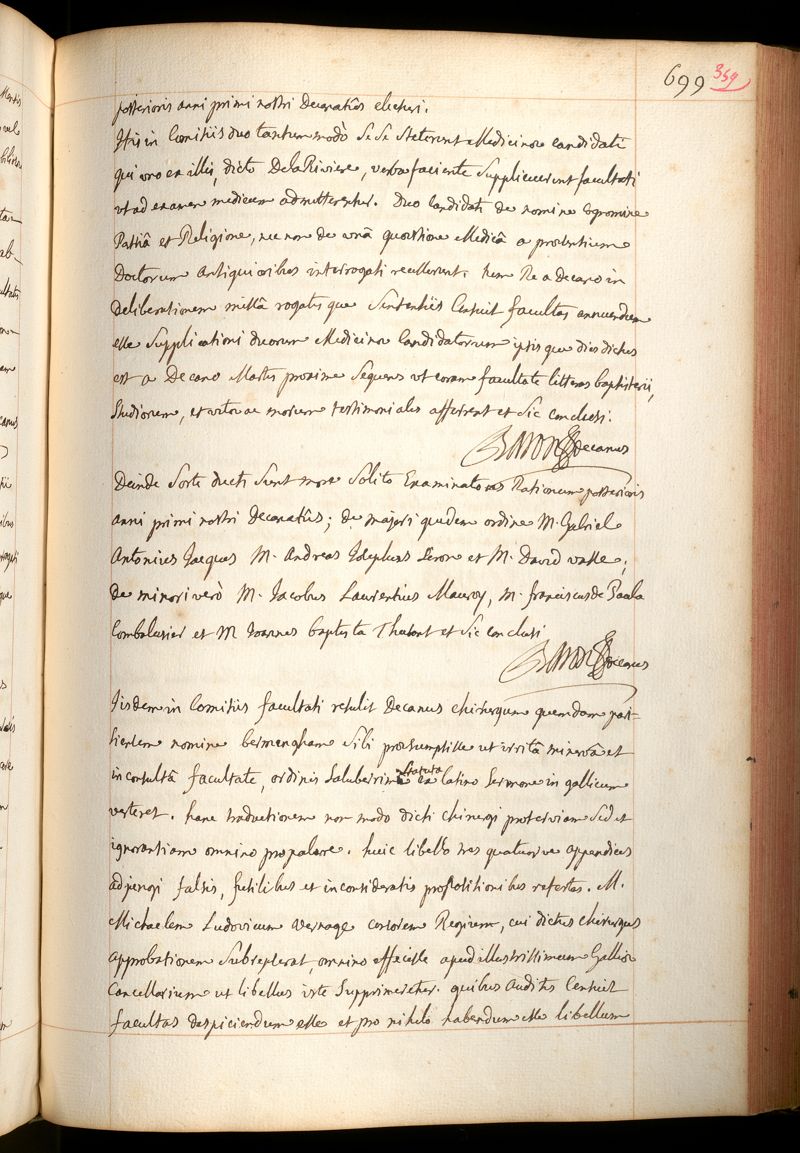 699 359
posterioris anni primi nostri Decanatûs electuri.
Iis in Comitiis duo tantummodò se se steterunt Medicinae candidati
qui uno ex illis, dicto DelaRiviere, verba faciente supplicuerunt facultati
ut ad examen medicum admitterentur. Duo Candidati de nomine cognomine
Patriâ et Religione, nec non de unâ quaestione Medicâ a praesentium
Doctorum antiquioribus interrogati recesserunt. tum Re a decano in
deliberationem missâ rogatisque sententiis Censuit facultas annuendum
esse supplicationi duorum Medicinae Candidatorum ipsis que dies dictus
est a Decano Martis proxime sequens ut coram facultate litteras baptisterii,
studiorum, et vitae ac morum testimoniales afferrent et sic conclusi.
Baron decanus
Deinde sorte ducti sunt more solito Examinatores Rationum posterioris
anni primi nostri decanatûs; de majori quidem ordine M. Gabriel
Antonius Jacques M. Andreas Josephus Leron et M. David vasse;
de minori verò M. Jacobus Laurentius Mauroy, M. franciscus de Paula
Combalusier et M Joannes baptista Thurant et sic conclusi
Baron decanus
Iisdem in Comitiis facultati retulit Decanus chirurgum quemdam pari-
siensem nomine bermengham sibi praesumpsisse ut invitâ minervâ et
inconsultâ facultate, ordinis saluberrimi statuta ex latino sermone in gallicum
verteret. hanc traductionem non modo dicti chirurgi proterviam sed et
ignorantiam omnino propalare. huic libello tres quatuorve appendices
adjungi falsis, futilibus et inconsideratis propositionibus refertas. M.
Michaelem Ludovicum vernage censorem Regium, cui dictus chirurgus
approbationem subrepserat, omnino effecisse apud illustrissimum Galliae
Cancellarium ut libellus iste supprimeretur. quibus auditis Censuit
facultas despiciendum esse et pro nihilo habendum esse libellum